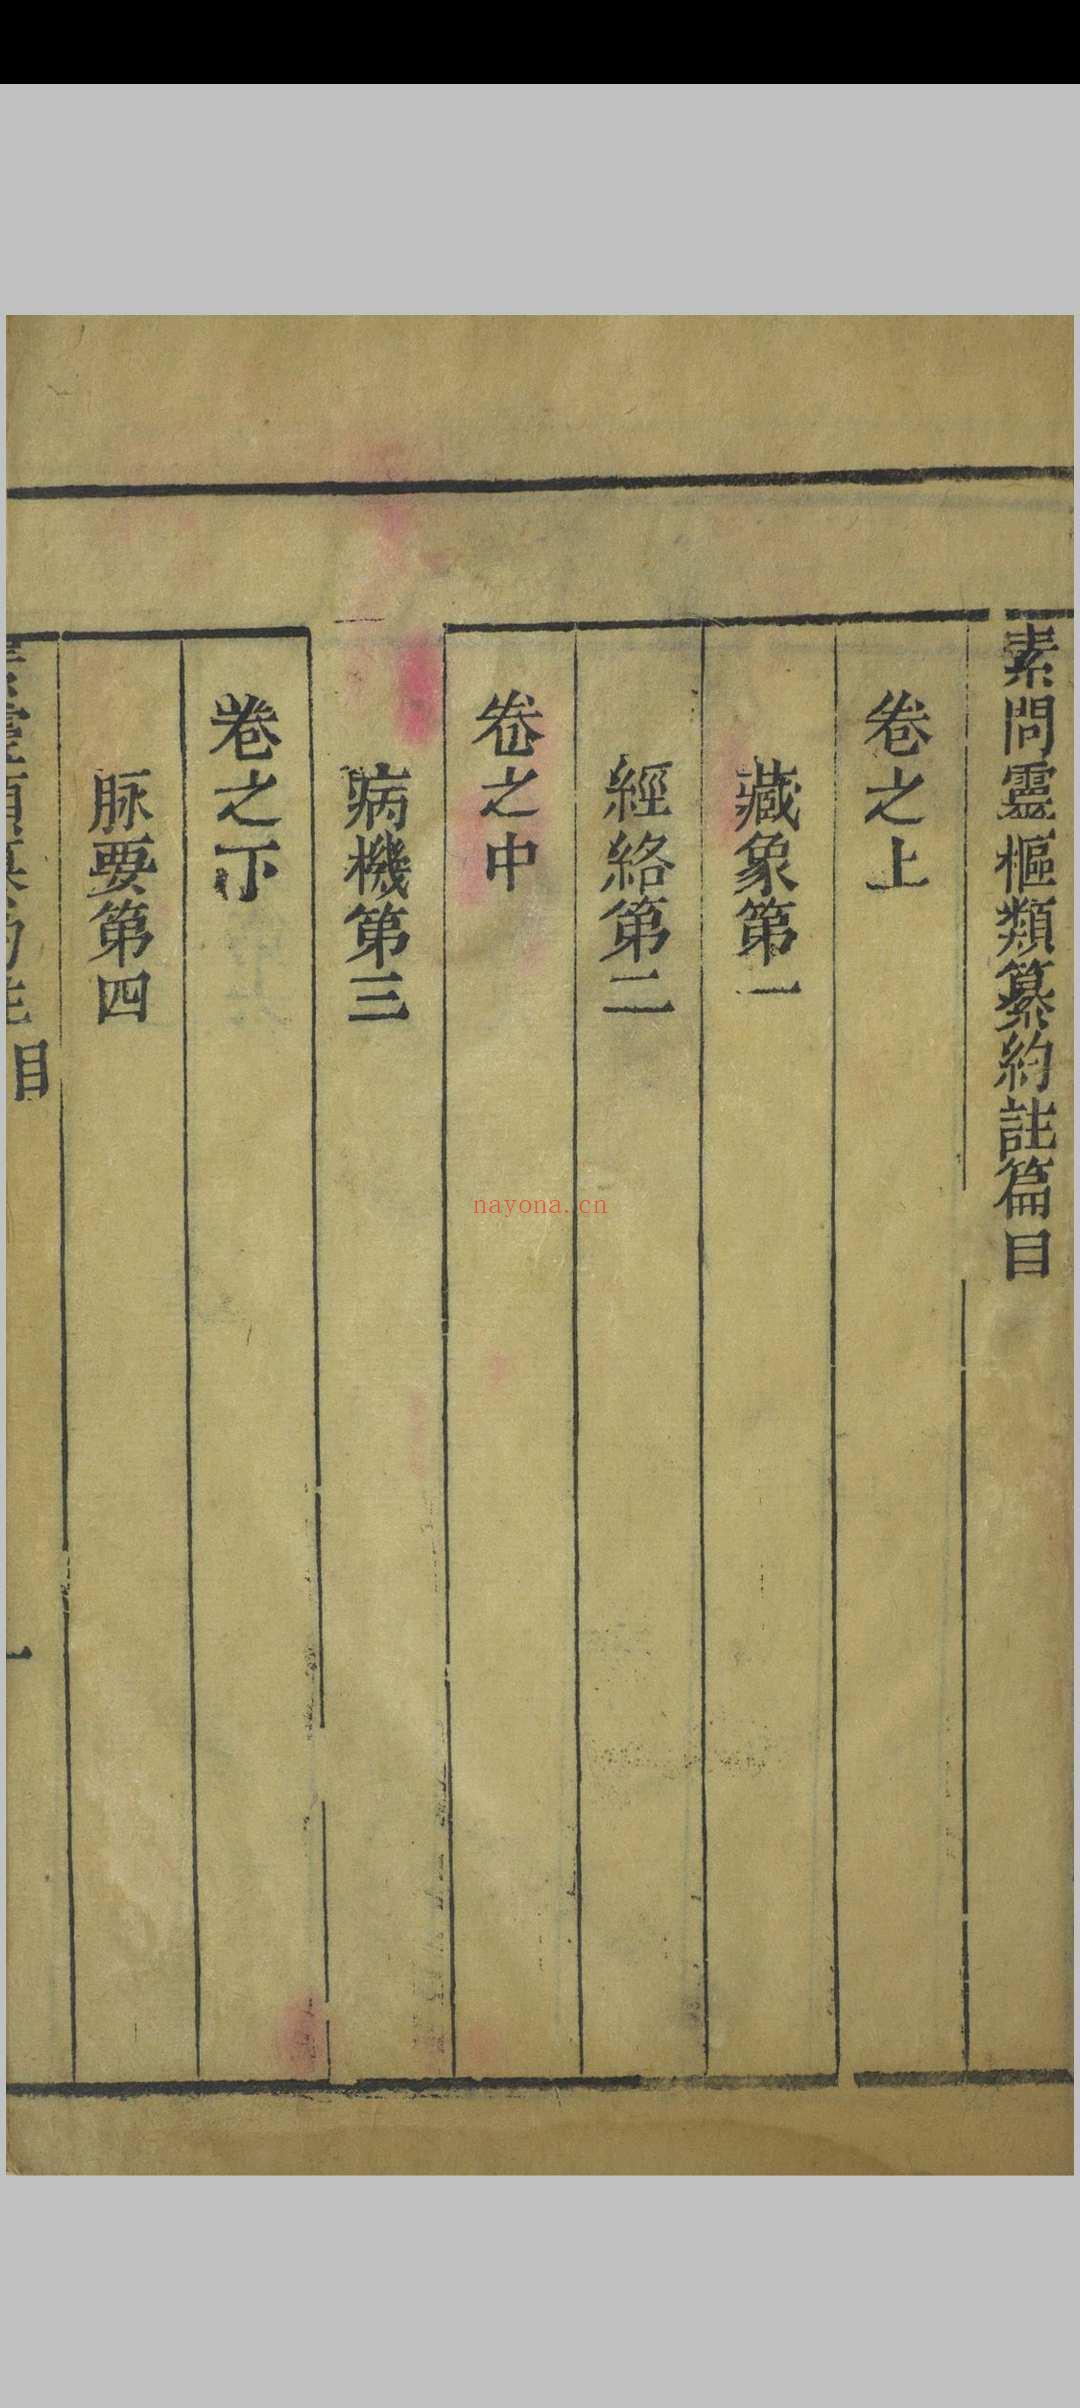 素問靈樞類纂約註篇目
卷之上
藏象第一
經絡第二
卷之中
病機第三
卷之下
脉要第四
目
一
nayona.cn